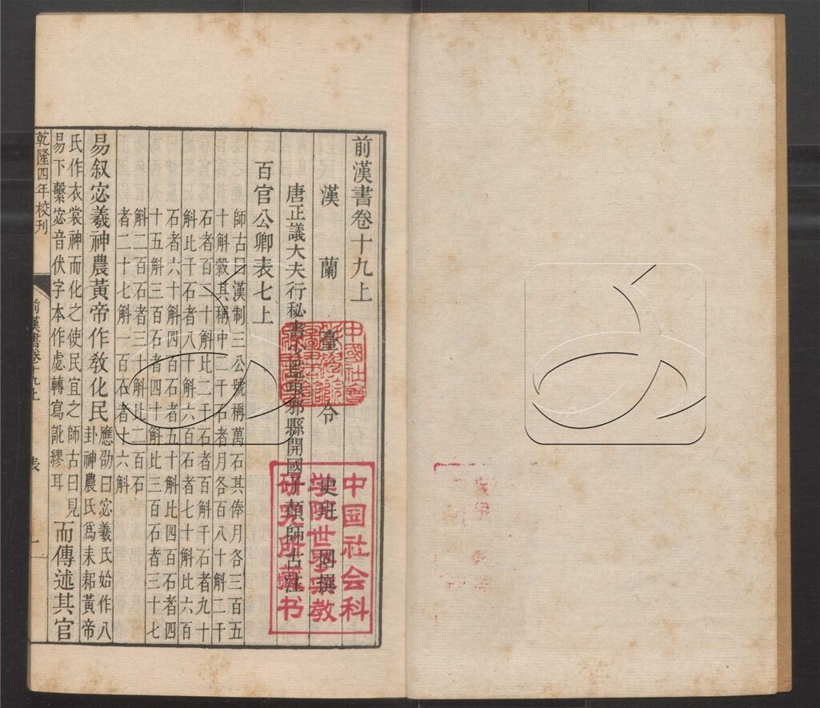 前漢書卷十九上
漢蘭臺令史班固撰
唐正議大夫行秘書少監琅邪縣開國子顏師古注
百官公卿表七上
師古曰漢制三公號稱萬石其俸月各三百五
十斛穀其稱中二千石者月各百八十斛二千
石者百二十斛比二千石者百斛千石者九十
斛比千石者八十斛六百石者七十斛比六百
石者六十斛四百石者五十斛比四百石者四
十五斛三百石者四十斛比三百石者三十七
斛二百石者三十斛比二百石
者二十七斛一百石者十六斛
易叙宓羲神農黃帝作教化民
應劭曰宓羲氏始作八
卦神農氏爲耒耜黃帝
氏作衣裳神而化之使民宜之師古曰見
易下繫宓音伏字本作虙轉寫訛謬耳
而傳述其官
乾隆四年校刊
前漢書卷十九上
表
一
中国社会科
学院世界宗教
研究所藏书